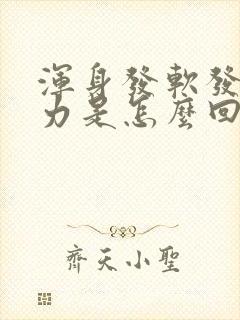 渾身發軟發
力是怎麼回
齊天小聖